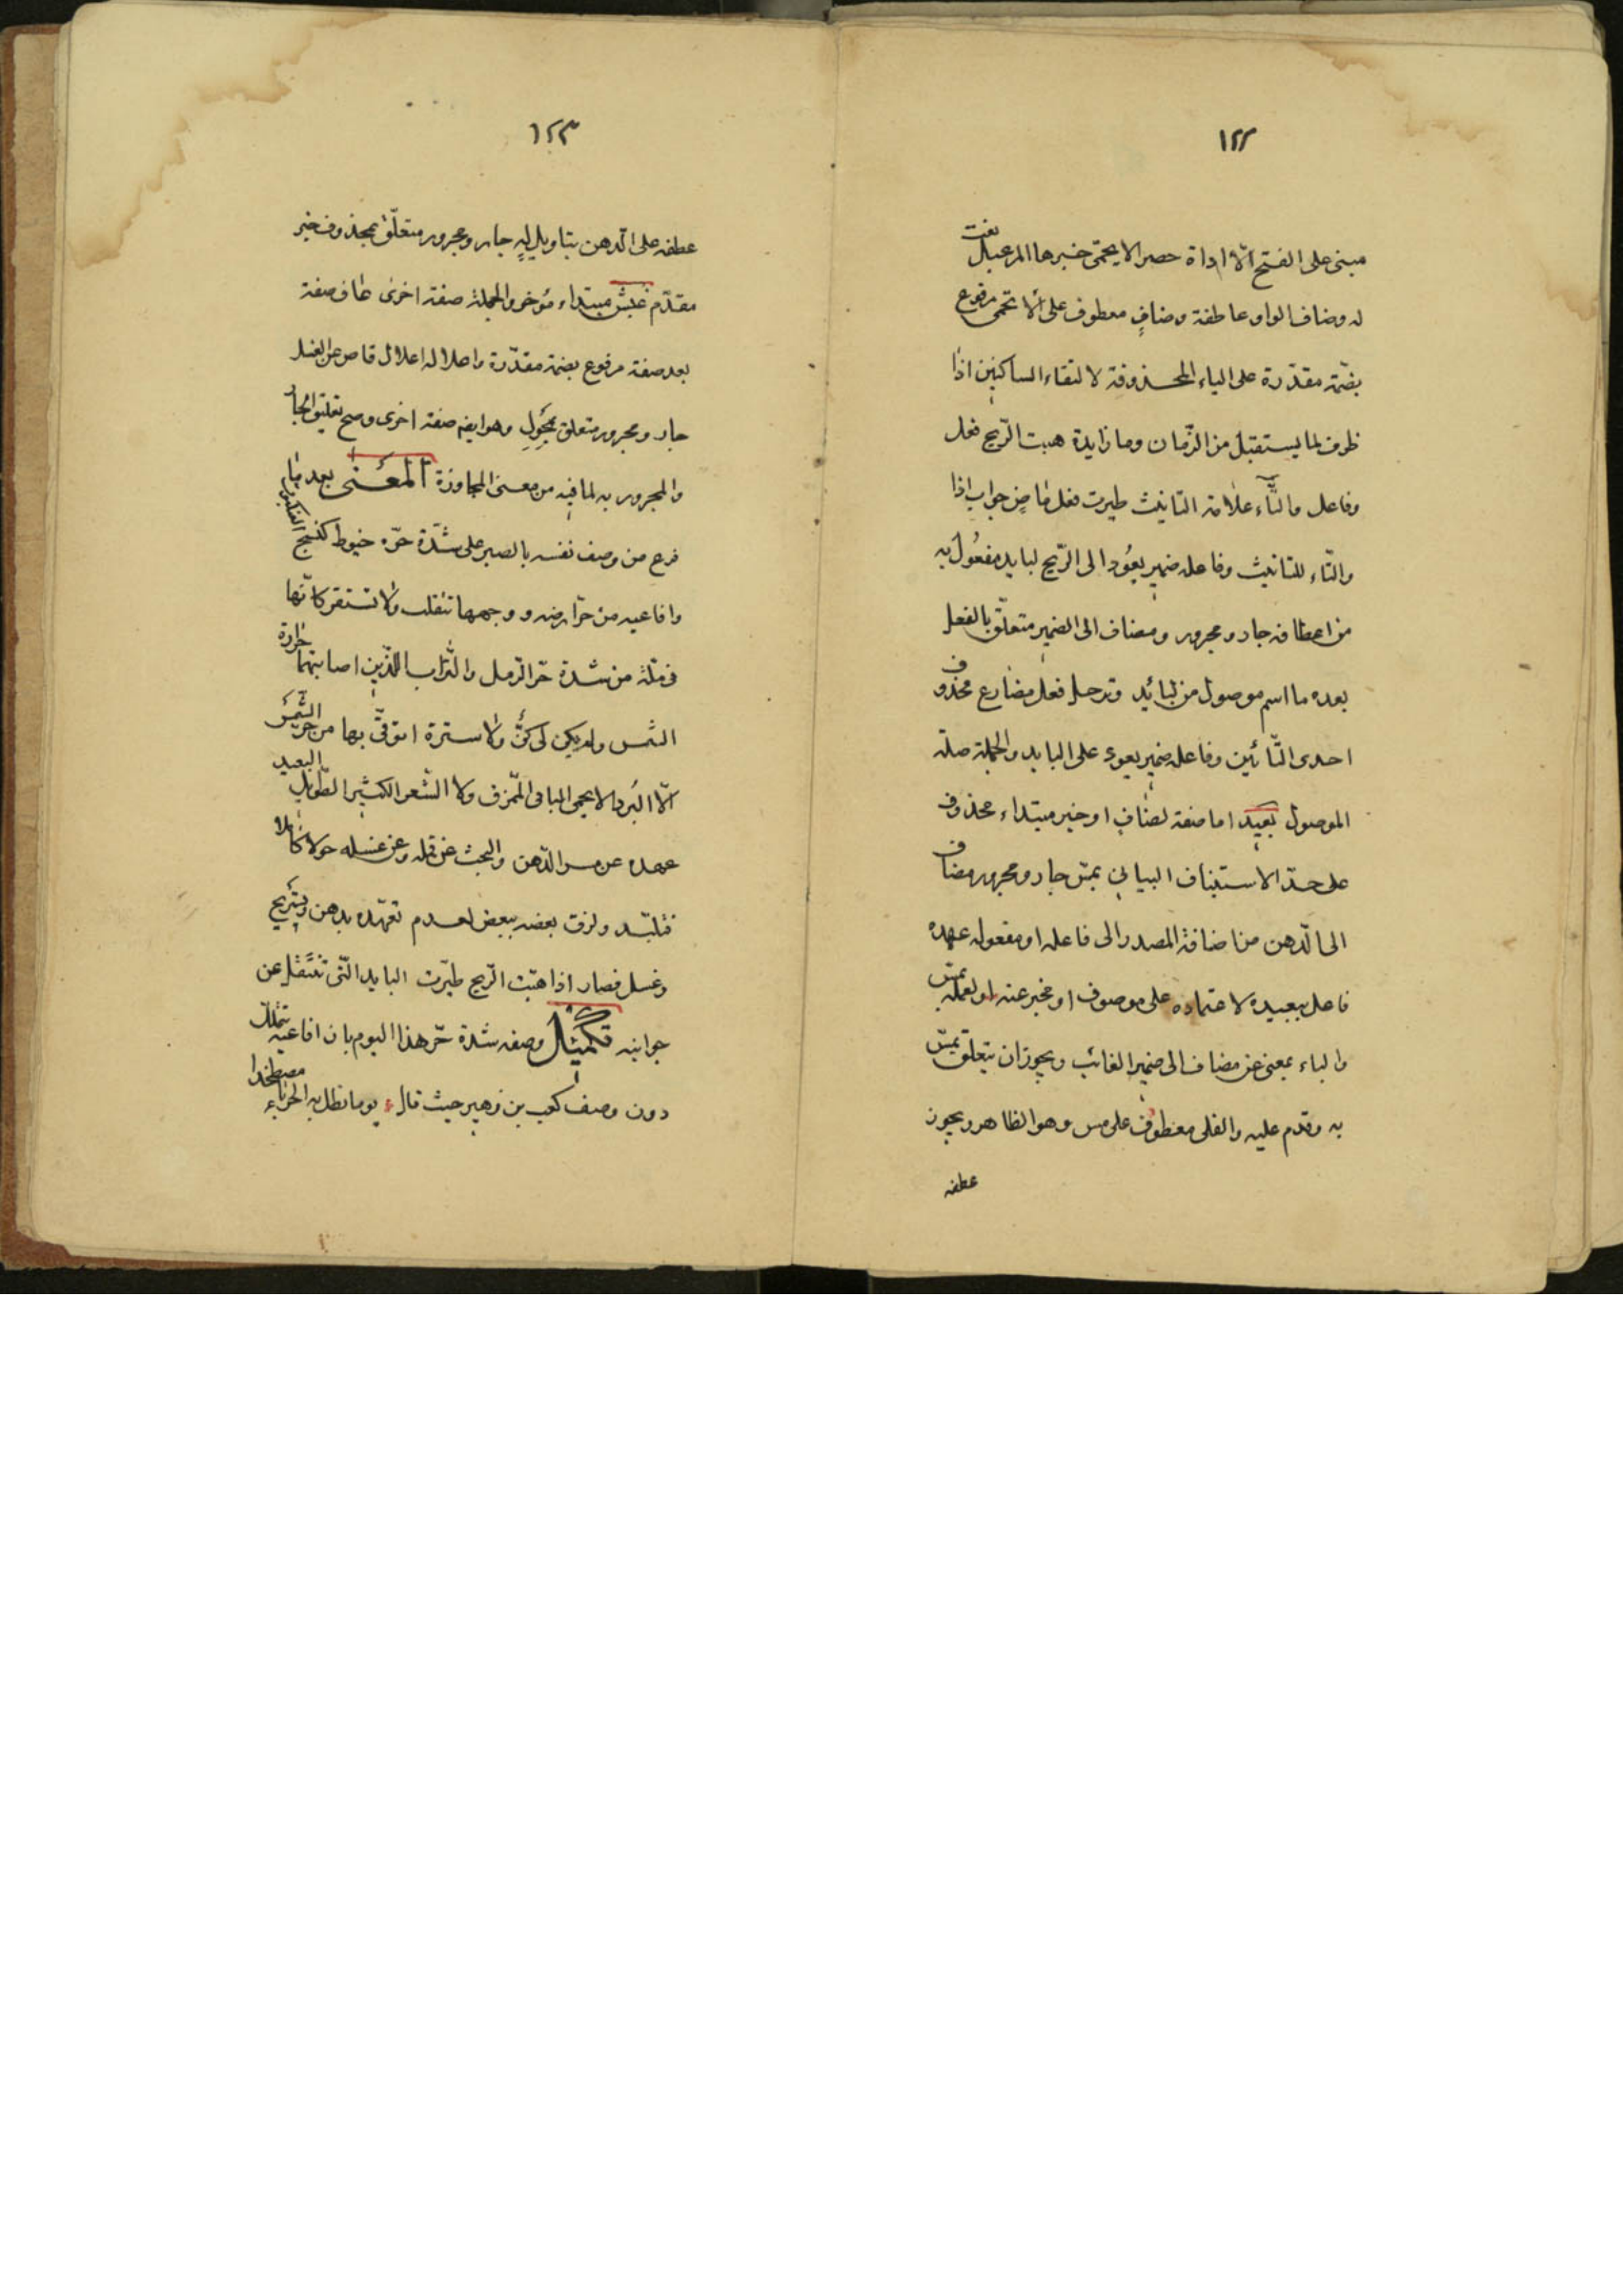 ١٢٢
مبنى على الفتح الّا اداة حصر الا يحمّى خبرها المرعبل نعت
له وضاف الواو عاطفة وضافٍ معطوف على الا تحمى مرفوع
بضمّة مقدّرة على الياء المحذوفة لالتقاء الساكنين اذا
ظرف لما يستقبل من الزّمان وما زايدة هبت الرّيح فعل
وفاعل والتّاء علامة التانيث طيرت فعل ماضٍ جواب اذا
والتّاء للتانيث وفاعله ضمير يعُود الى الرّيح لبايد مفعُول به
من اعطافه جار ومجرور ومضاف الى الضمير متعلّق بالفعل
بعده ما اسم موصول من لبائد وترجل فعل مضارع محذوف
احدى التّائين وفاعله ضمير يعود على البايد والجملة صلة
الموصول بعيد اما صفة لضافٍ او خبر مبتداء محذوف
على حدّ الاستيناف البياني بمسّ جار ومجرور مضاف
الى الدّهن من اضافة المصدر الى فاعله او مفعوله عهده
فاعل ببعيد لاعتماده على موصوف او مخبر عنه او لعمله بمسّ
والباء بمعنى عن مضاف الى ضمير الغائب ويجوز ان يتعلق بمسّ
به وقدم عليه والفلى معطوف على مس وهو الظاهر ويجوز
عطفه
١٢٣
عطفه على الدّهن بتاويل له جار ومجرور متعلّق بمحذوف خبر
مقدّم عبس مبتداء مؤخر والجملة صفة اخرى عاف صفة
بعد صفة مرفوع بضمة مقدّرة واعلاله اعلال قاض من الغسل
جار ومجرور متعلق بمحول وهو ايضا صفة اخرى وصح تعليق الجار
والمجرور به لما فيه من معنى المجاوزة المعنى بعد ما
فرع من وصف نفسه بالصبر على شدّة حرّه خيوط كنسج العنكبوت
وافاعيه من حرّ ارضه ووجهها تنقلب ولا تستقر كانّها
فى ملّة من شدة حرّ الرّمل والتّراب اللّذين اصابتهما حرارة
الشمس ولم يكن لى كنٌّ ولا سترة اتوقّى بها من حرّ الشّمس
الّا البُرد الاتحمى البالى الممّزق ولا الشّعر الكثير الطّويل البعيد
عهده عن مس الدّهن والبحث عن قمله وعن غسله حولا كاملا
فتلبّد ولزق بعضه ببعض لعدم تعهّده بدهن وتسريح
وغسل فصار اذا هبّت الرّيح طيّرت البايد الّتى تنتقل عن
جوانبه تكميل وصفه شدة حّر هذا اليوم بان افاعيه تتململ
دون وصف كعب بن زهير حيث قال يوما يظل به الحرباء مصطخدا